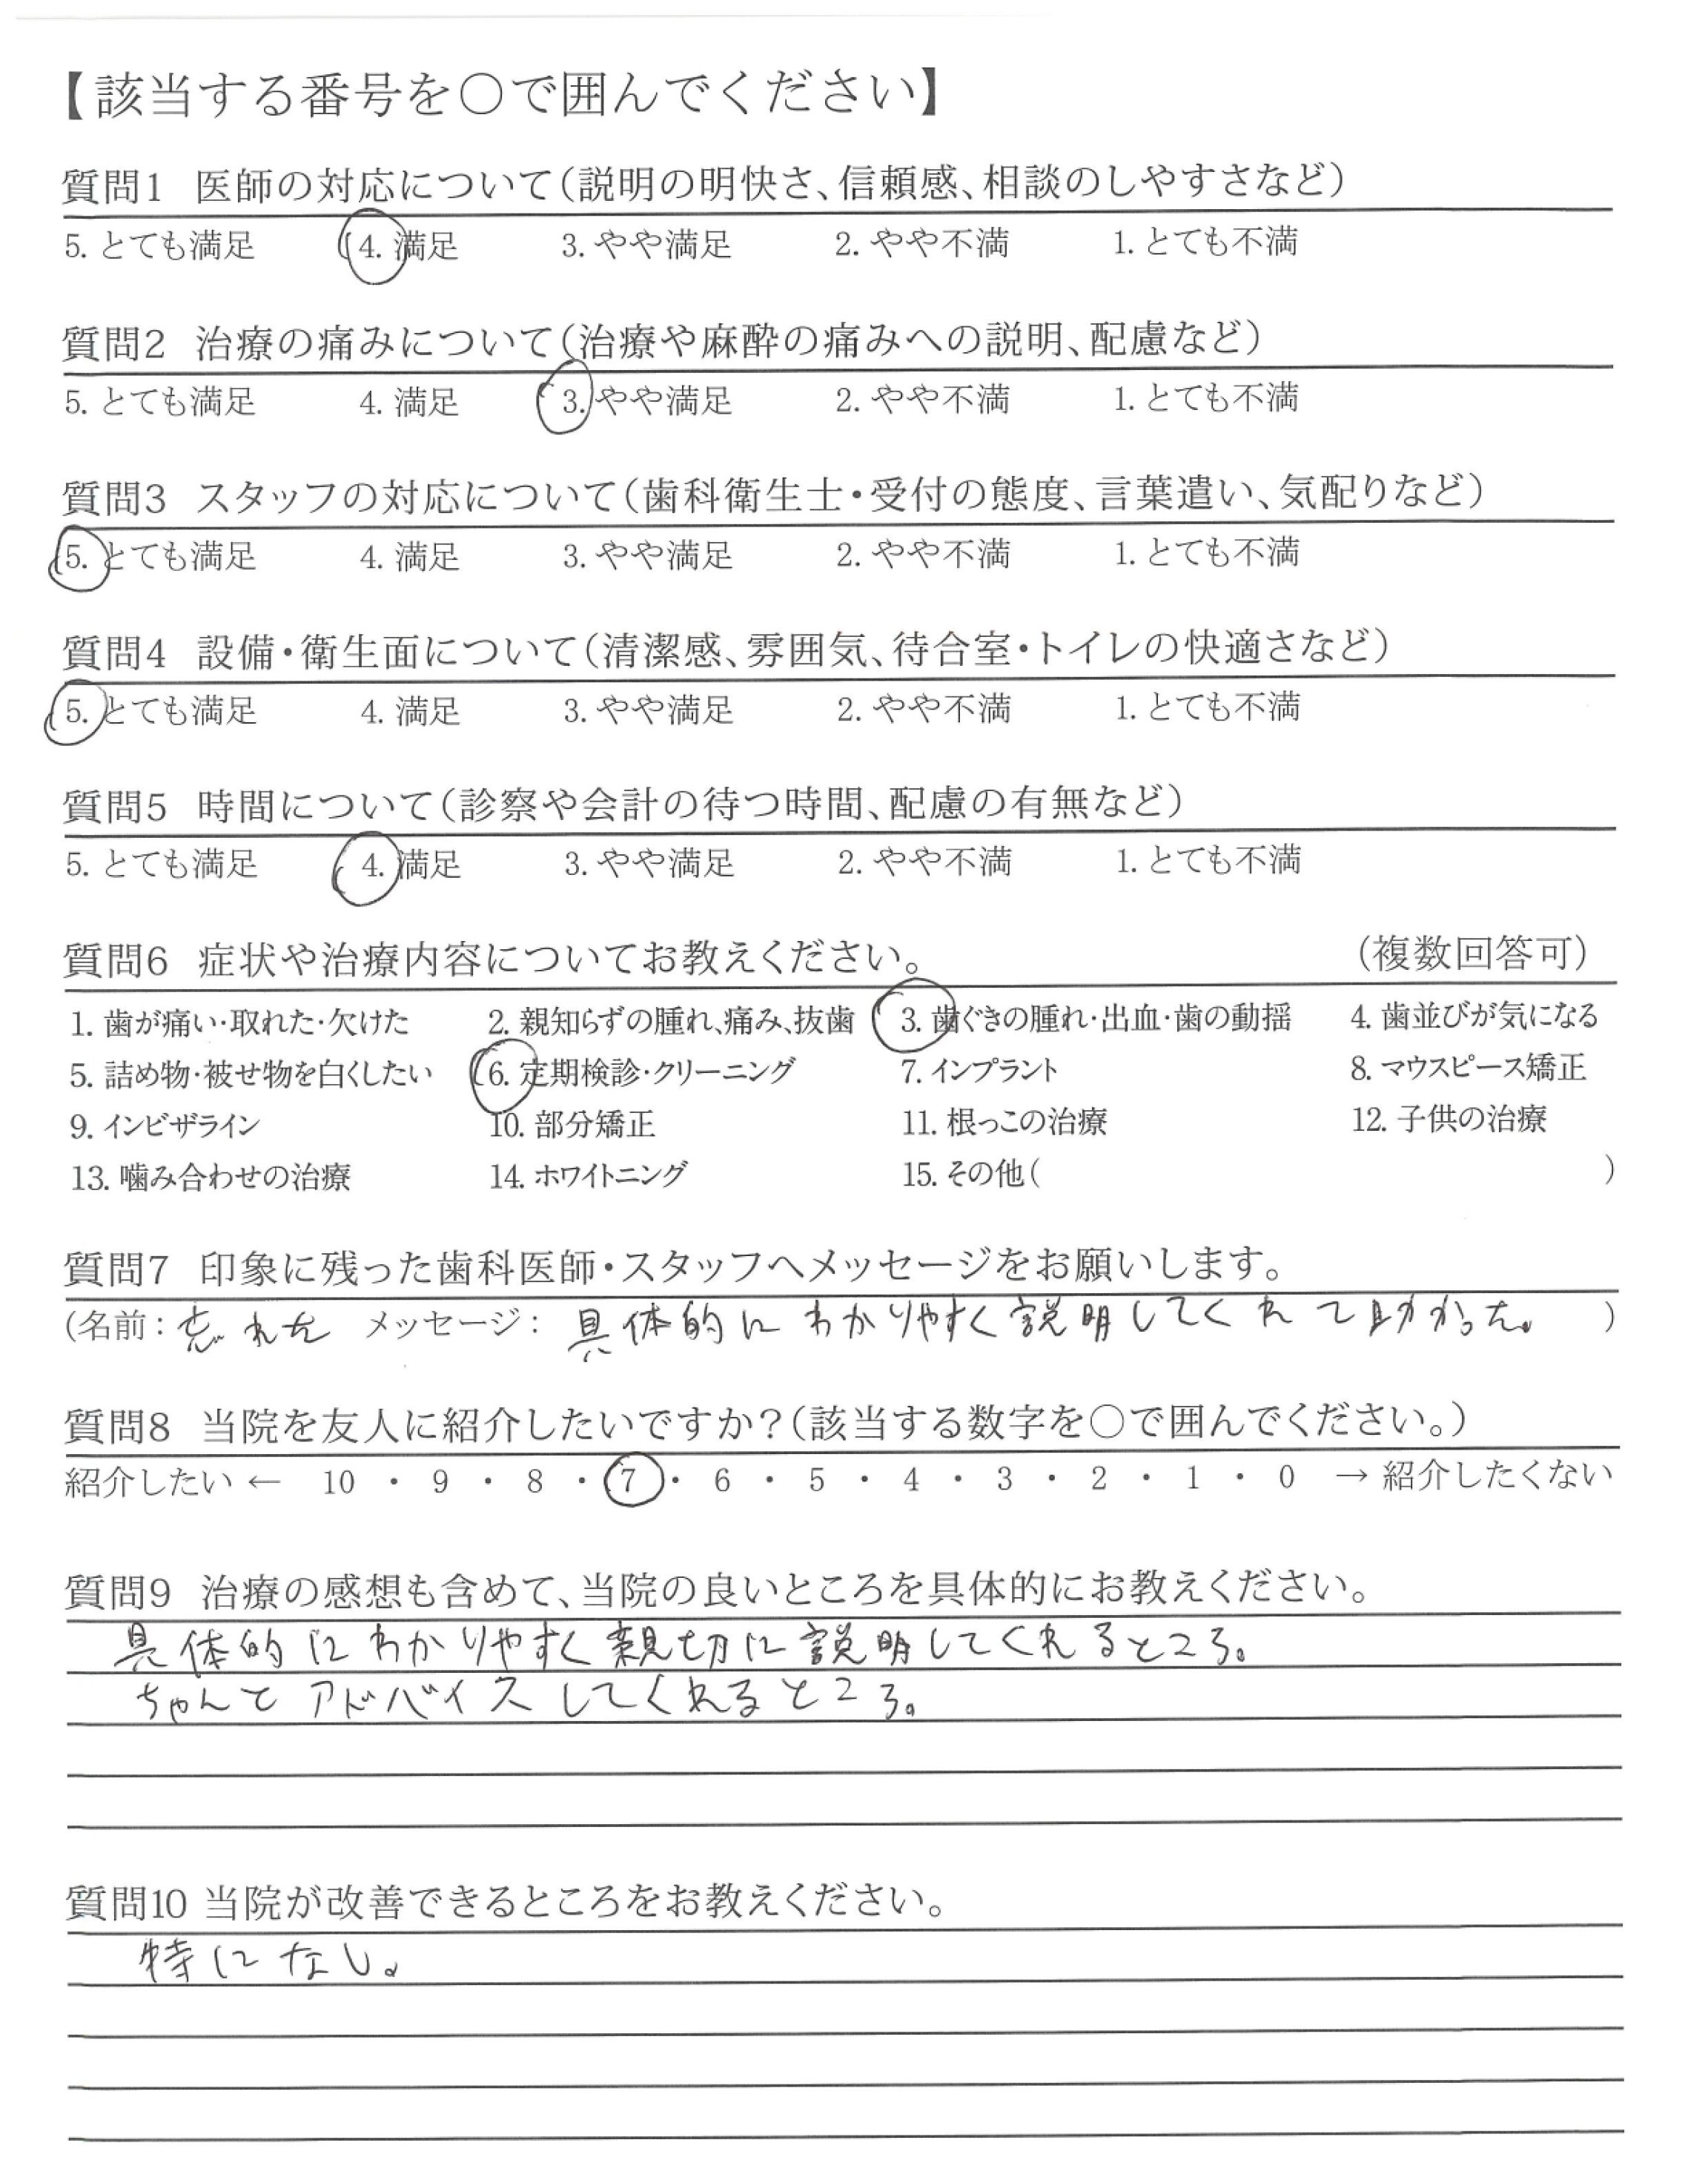 【該当する番号を○で囲んでください】
質問1 医師の対応について(説明の明快さ、信頼感、相談のしやすさなど)
5. とても満足 4. 満足 3. やや満足 2. やや不満 1. とても不満
質問2 治療の痛みについて(治療や麻酔の痛みへの説明、配慮など)
5. とても満足 4. 満足 3. やや満足 2. やや不満 1. とても不満
質問3 スタッフの対応について(歯科衛生士・受付の態度、言葉遣い、気配りなど)
5. とても満足 4. 満足 3. やや満足 2. やや不満 1. とても不満
質問4 設備・衛生面について(清潔感、雰囲気、待合室・トイレの快適さなど)
5. とても満足 4. 満足 3. やや満足 2. やや不満 1. とても不満
質問5 時間について(診察や会計の待つ時間、配慮の有無など)
5. とても満足 4. 満足 3. やや満足 2. やや不満 1. とても不満
質問6 症状や治療内容についてお教えください。 (複数回答可)
1. 歯が痛い・取れた・欠けた 2. 親知らずの腫れ、痛み、抜歯 3. 歯ぐきの腫れ・出血・歯の動揺 4. 歯並びが気になる
5. 詰め物・被せ物を白くしたい 6. 定期検診・クリーニング 7. インプラント 8. マウスピース矯正
9. インビザライン 10. 部分矯正 11. 根っこの治療 12. 子供の治療
13. 噛み合わせの治療 14. ホワイトニング 15. その他( )
質問7 印象に残った歯科医師・スタッフへメッセージをお願いします。
(名前: 忘れた メッセージ: 具体的にわかりやすく説明してくれて助かった。 )
質問8 当院を友人に紹介したいですか?(該当する数字を○で囲んでください。)
紹介したい ← 10 ・ 9 ・ 8 ・ 7 ・ 6 ・ 5 ・ 4 ・ 3 ・ 2 ・ 1 ・ 0 → 紹介したくない
質問9 治療の感想も含めて、当院の良いところを具体的にお教えください。
具体的にわかりやすく親切に説明してくれるところ。
ちゃんとアドバイスしてくれるところ。
質問10 当院が改善できるところをお教えください。
特になし。